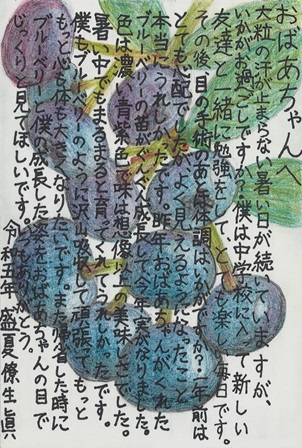 おばあちゃんへ
大粒の汗が止まらない暑い日が続いていますが、
いかがお過ごしですか？僕は中学校に入って新しい
友達と一緒に勉強を
とても楽しい毎日です。
その後、目の手術のあと体調はいかがですか？一年前は
とても心配でしたがよく見えるようになったこと
本当にうれしかったです。昨年おばあちゃんがくれた
ブルーベリーの苗がぐんぐん成長して今年実がなりました。
色は濃い青紫色で味は想像以上の美味しさでした。
暑い中でもまるまると育ってくれてうれしかったです。
僕もブルーベリーのように沢山吸収して頑張ってもっと
もっと心も体も大きくなりたいです。また帰省した時に
ブルーベリーと僕の成長した姿をおばあちゃんの目で
じっくりと見てほしいです。いつもありがとう。
令和五年 盛夏 僚生 眞